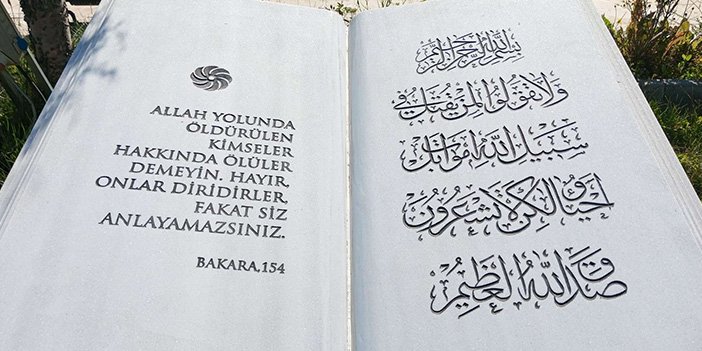 ALLAH YOLUNDA
ÖLDÜRÜLEN
KİMSELER
HAKKINDA ÖLÜLER
DEMEYİN. HAYIR,
ONLAR DİRİDİRLER,
FAKAT SİZ
ANLAYAMAZSINIZ.
BAKARA,154
بسم الله الرحمن الرحيم
ولا تقولوا لمن يقتل في
سبيل الله اموات بل
احياء ولكن لا تشعرون
صدق الله العظيم